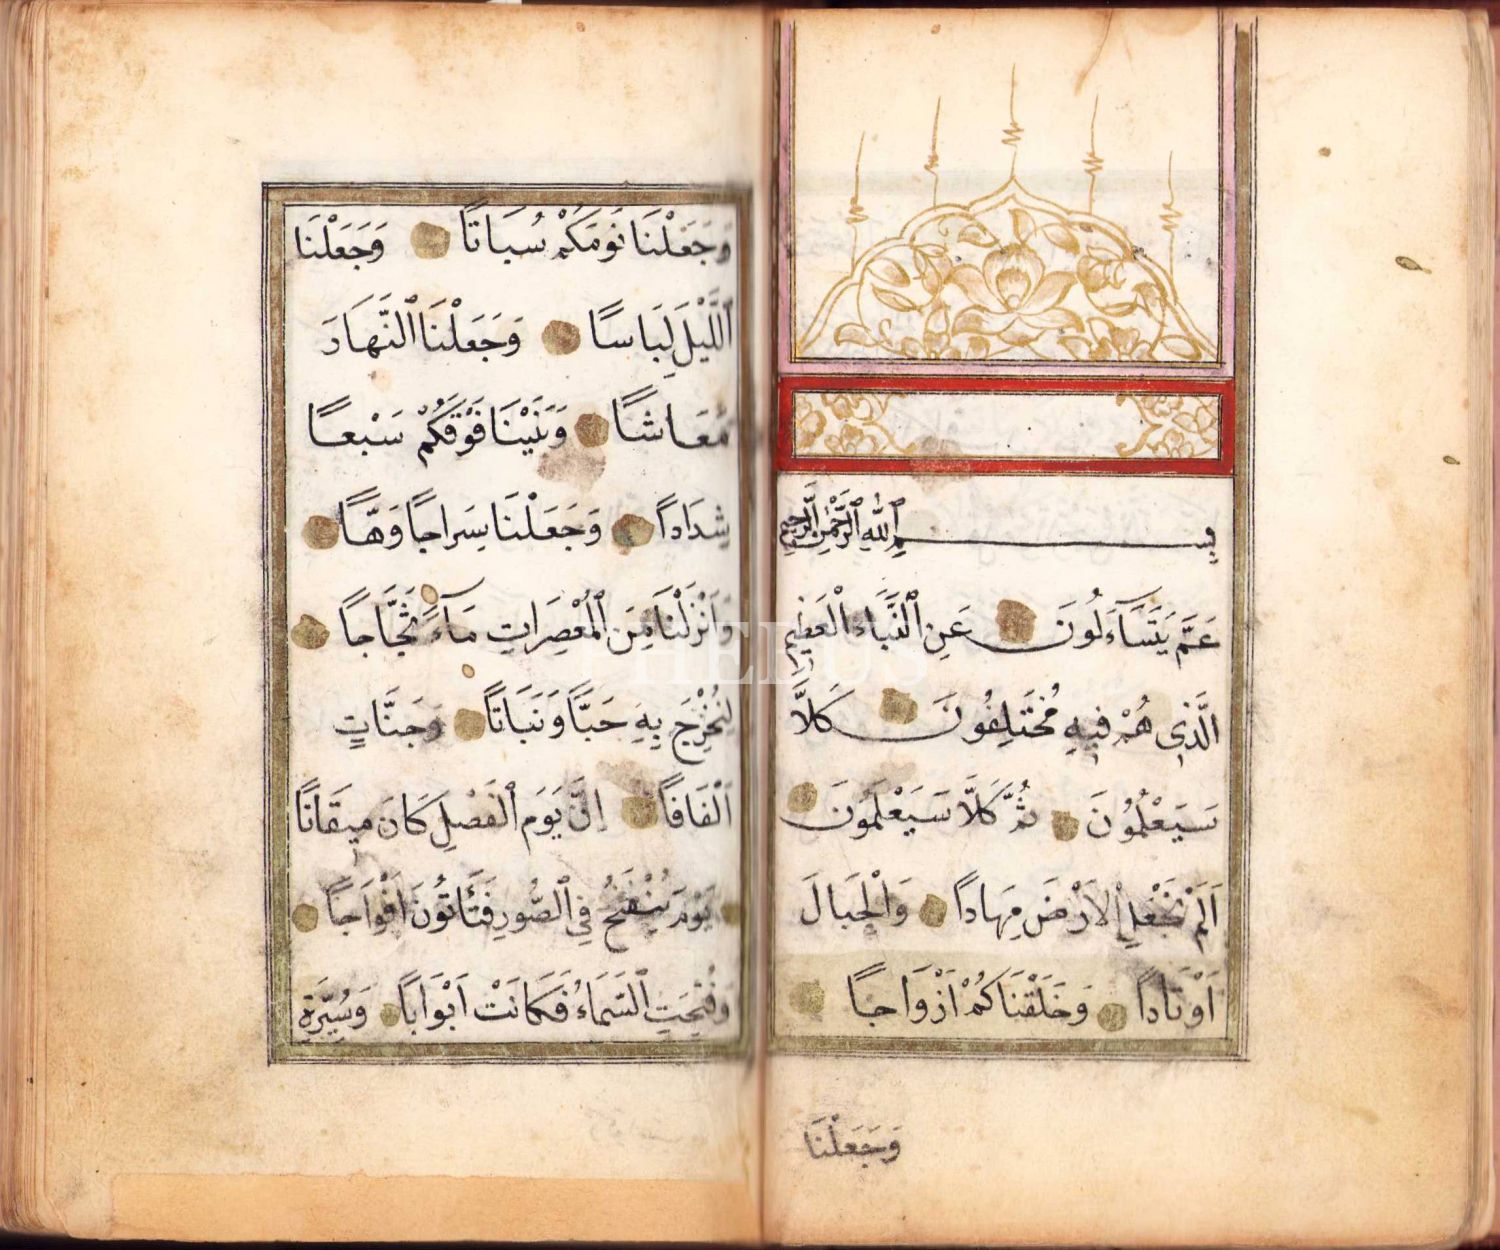 بِسْمِ ٱللهِ ٱلرَّحْمٰنِ ٱلرَّحِيمِ
عَمَّ يَتَسَآءَلُونَ عَنِ ٱلنَّبَاءِ الْعَظِيمِ
الَّذِي هُمْ فِيهِ مُخْتَلِفُونَ كَلَّا
سَيَعْلَمُونَ ثُمَّ كَلَّا سَيَعْلَمُونَ
اَلَمْ نَجْعَلِ الْاَرْضَ مِهَادًا وَالْجِبَالَ
اَوْتَادًا وَخَلَقْنَاكُمْ اَزْوَاجًا
وَجَعَلْنَا
وَجَعَلْنَا نَوْمَكُمْ سُبَاتًا وَجَعَلْنَا
اللَّيْلَ لِبَاسًا وَجَعَلْنَا ٱلنَّهَارَ
مَعَاشًا وَبَنَيْنَا فَوْقَكُمْ سَبْعًا
شِدَادًا وَجَعَلْنَا سِرَاجًا وَهَّاجًا
وَاَنْزَلْنَا مِنَ ٱلْمُعْصِرَاتِ مَآءً ثَجَّاجًا
لِنُخْرِجَ بِهِ حَبًّا وَنَبَاتًا وَجَنَّاتٍ
اَلْفَافًا اِنَّ يَوْمَ ٱلْفَصْلِ كَانَ مِيقَاتًا
يَوْمَ يُنْفَخُ فِي ٱلصُّورِ فَتَأْتُونَ اَفْوَاجًا
وَفُتِحَتِ ٱلسَّمَاءُ فَكَانَتْ اَبْوَابًا وَسُيِّرَةِ